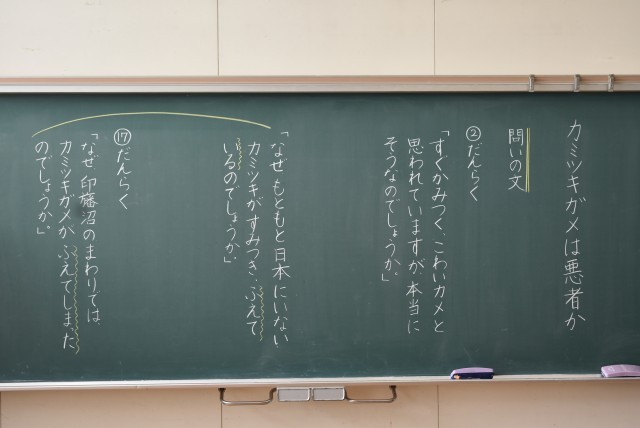 カミツキガメは悪者か
問いの文
②だんらく
「すぐかみつく、こわいカメと
思われていますが、本当に
そうなのでしょうか。」
「なぜ もともと日本にいない
カミツキがすみつき、ふえて
いるのでしょうか。」
⑰だんらく
「なぜ 印旛沼のまわりでは、
カミツキガメが ふえてしまった
のでしょうか。」